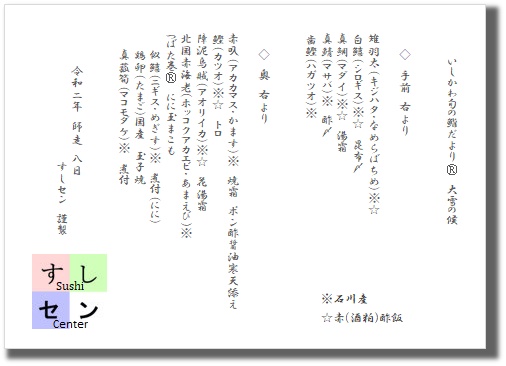 いしかわ旬の鮨だより® 大雪の候
◇ 手前 右より
雉羽太(キジハタ・なめらばちめ)※☆
白鱚(シロギス)※☆ 昆布〆
真鯛(マダイ)※☆ 湯霜
真鯖(マサバ)※ 酢〆
歯鰹(ハガツオ)※
※石川産
☆赤(酒粕)酢飯
◇ 奥 右より
赤叺(アカカマス・かます)※ 焼霜 ポン酢醤油寒天添え
鰹(カツオ)※☆ トロ
障泥烏賊(アオリイカ)※☆ 花湯霜
北国赤海老(ホッコクアカエビ・あまえび)※
つばた巻® にに玉まこも
似鱚(ニギス・めぎす)※ 煮付(にに)
鶏卵(たまご)国産 玉子焼
真菰筍(マコモタケ)※ 煮付
令和二年 師走 八日
すしセン 謹製
すし
Sushi
セン
Center